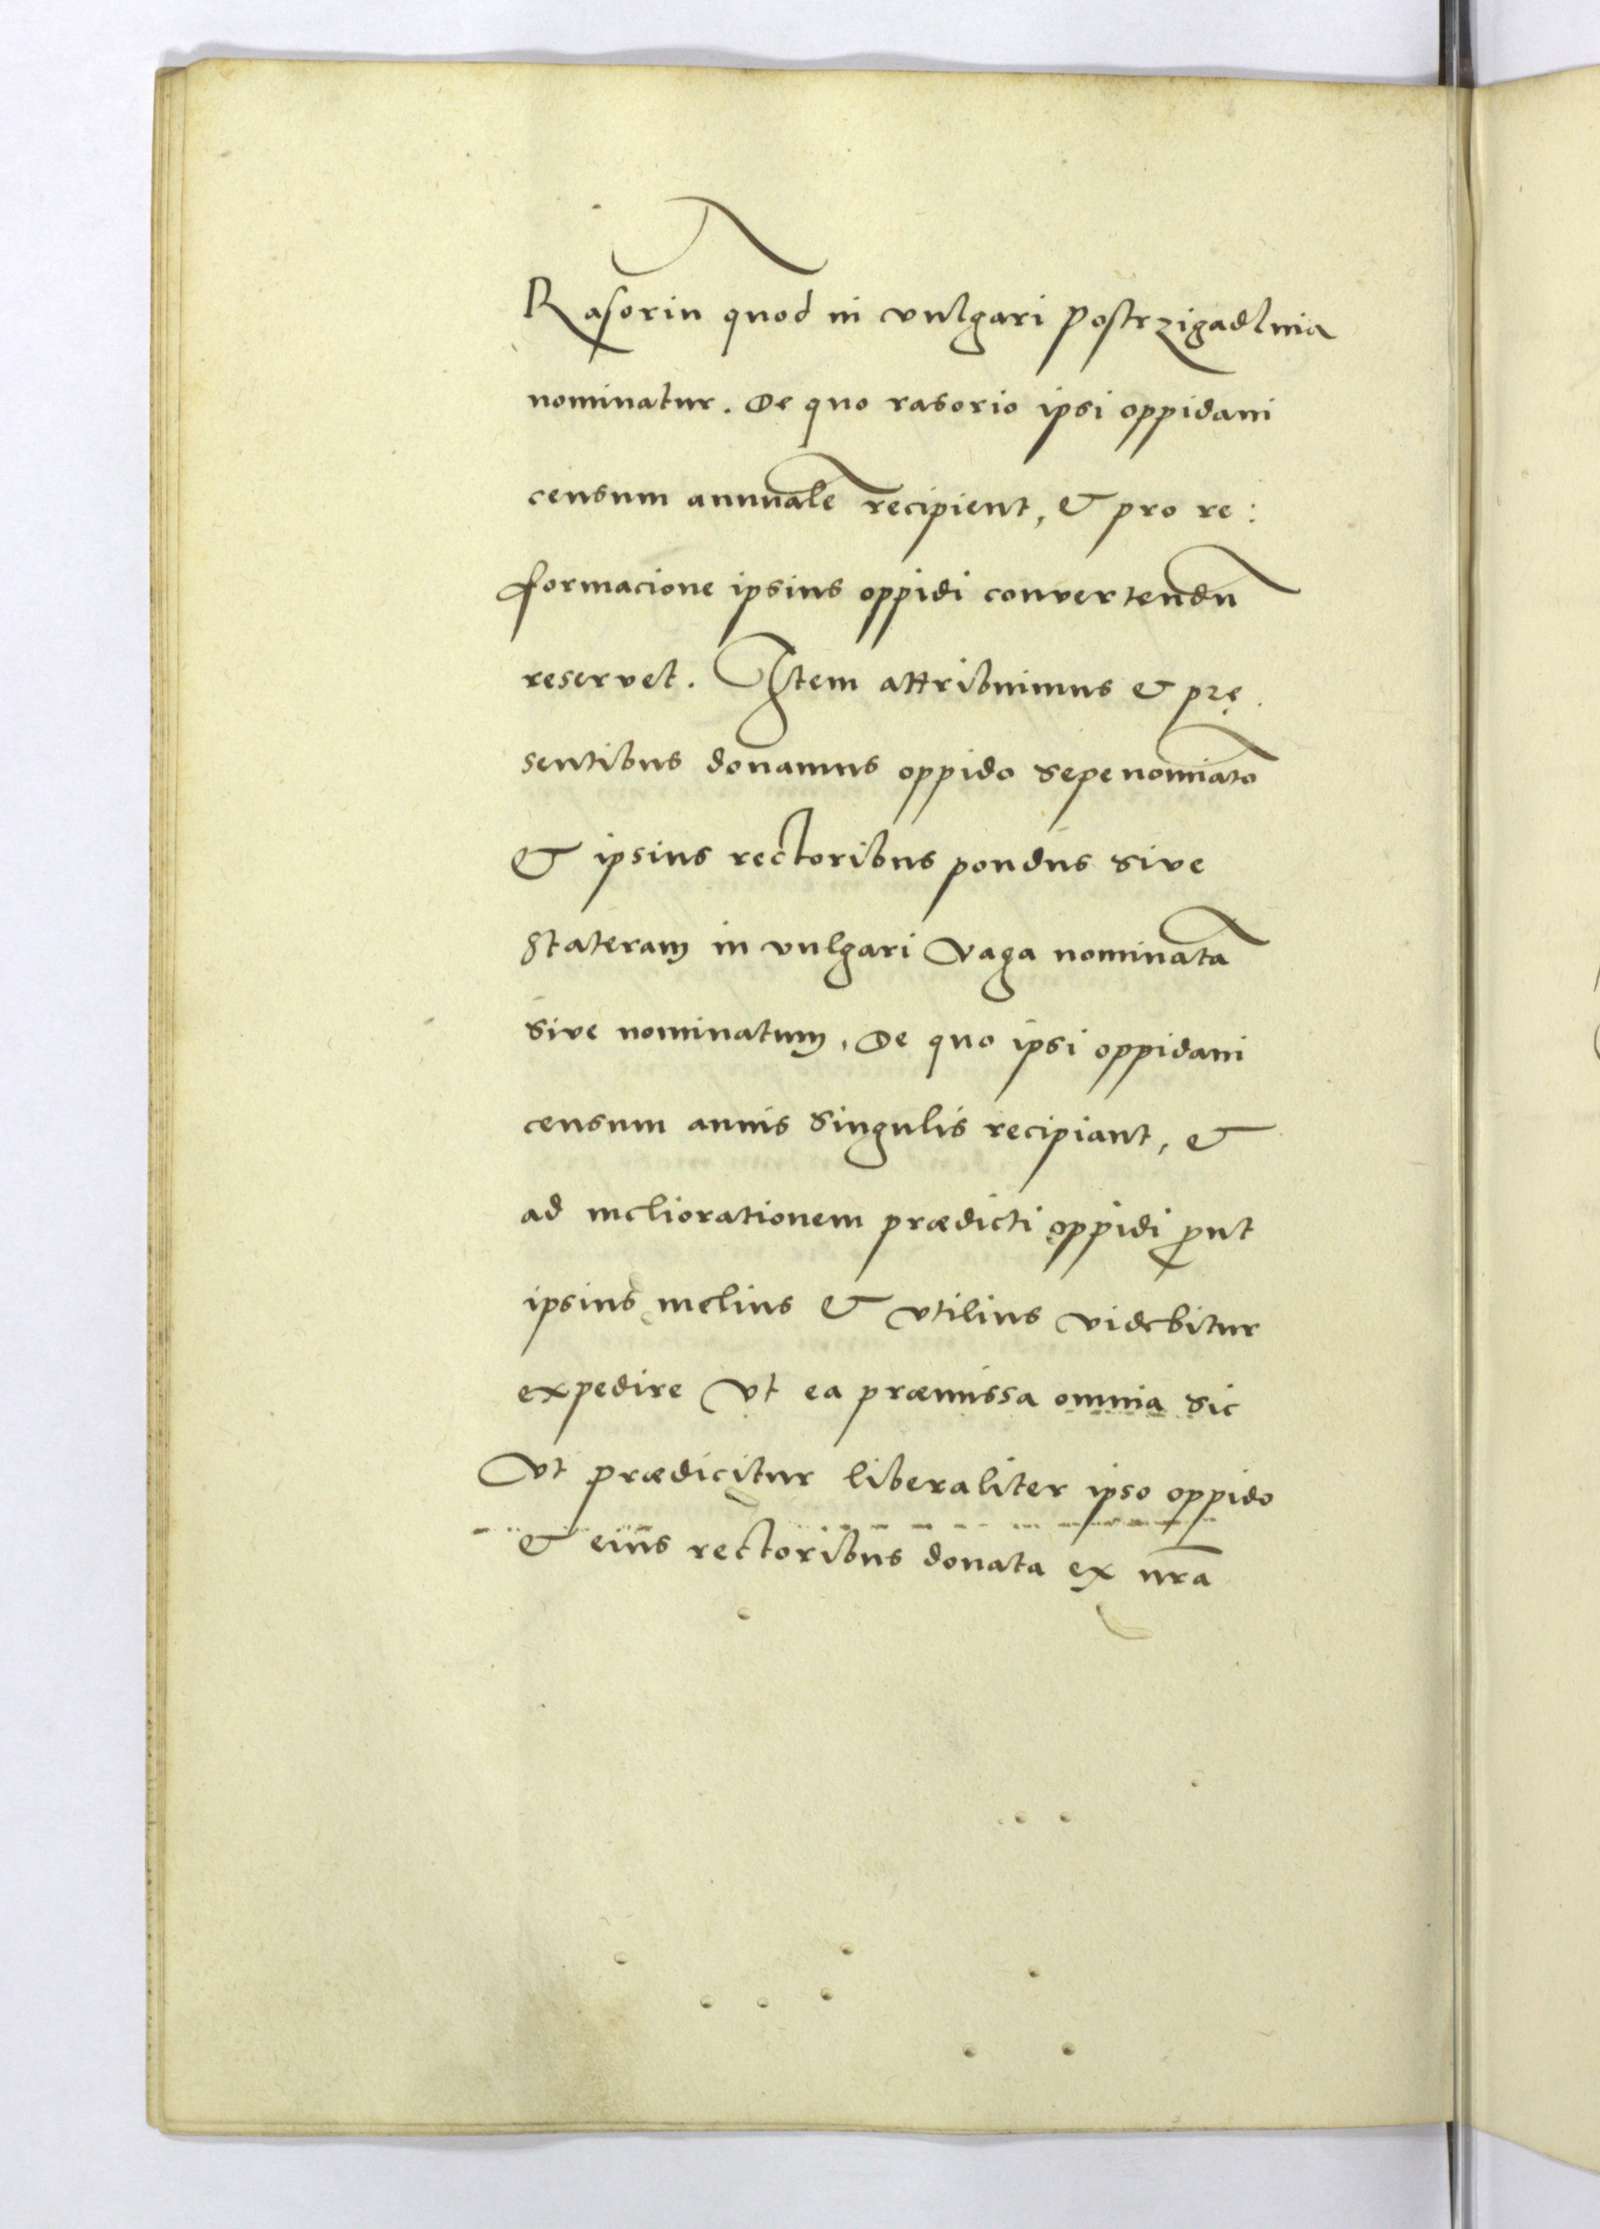 Rasoriū quod in vulgari Postrzigadlnia
nominatur. De quo rasorio ipsi oppidani
censum annuale recipient, & pro re:
formacione ipsius oppidi convertendū
reservet. Item attribuimus & prę
sentibus donamus oppido sepenomiāto
& ipsius rectoribus pondus sive
Stateram in vulgari Vaga nominatā
Sive nominatum, De quo ipsi oppidani
censum annis Singulis recipiant, &
ad meliorationem prædicti oppidi ꝓut
ipsius melius & vtilius videbitur
expedire Vt ea præmissa omnia sic
Vt prædicitur liberaliter ipso oppido
& eius rectoribus donata ex nr̄a